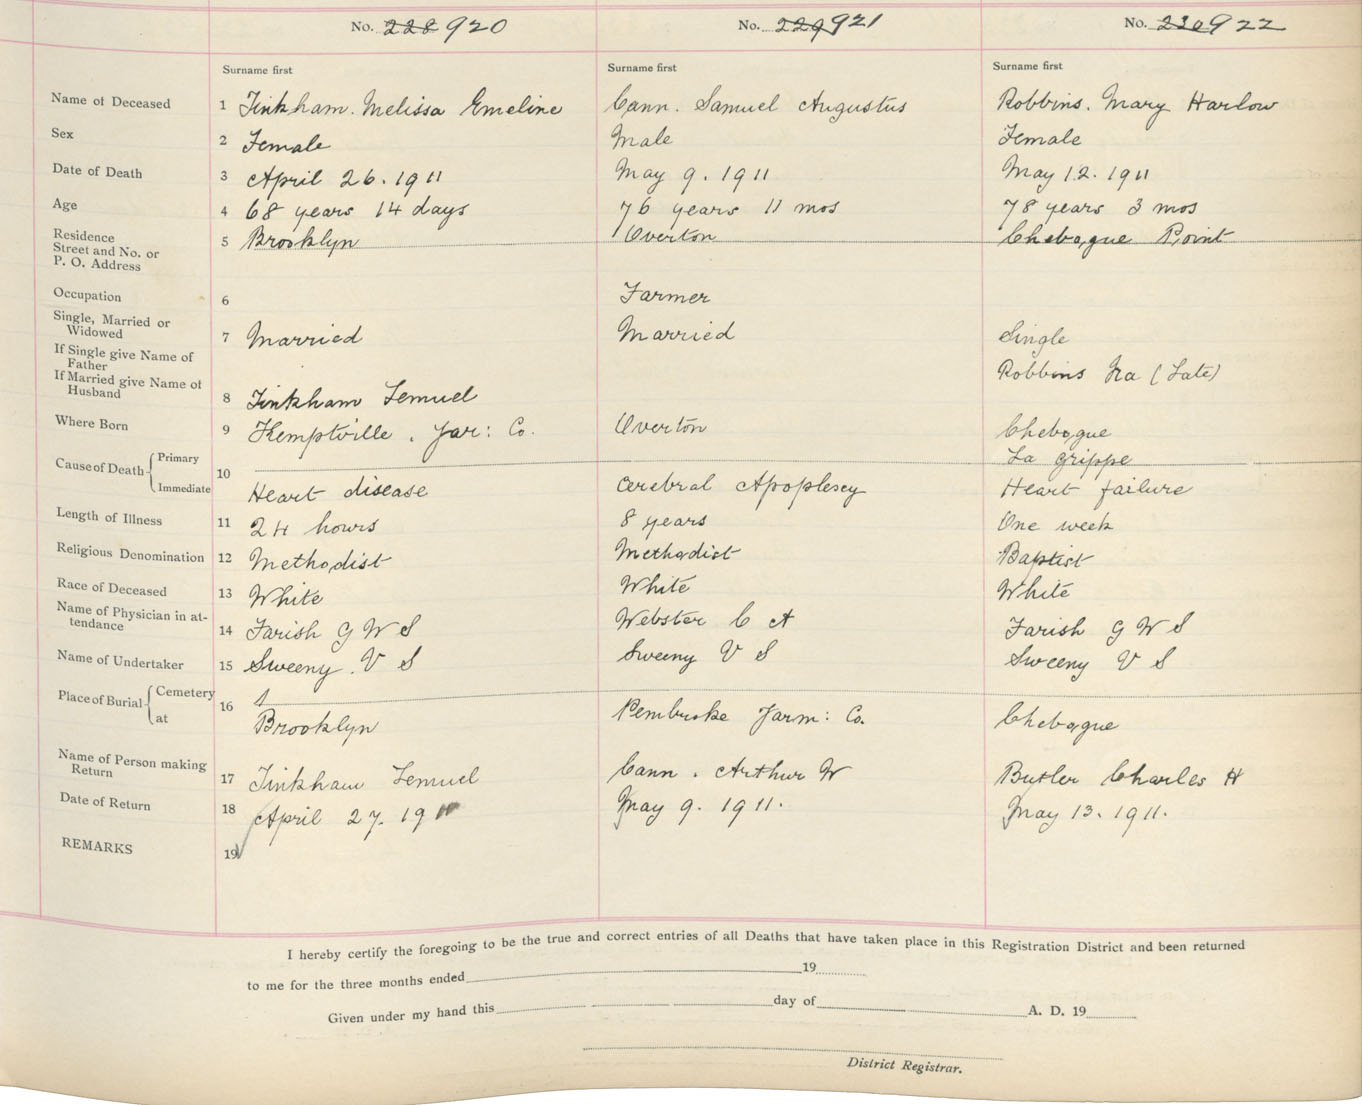 No. 228 920 No. 229 921 No. 230 922
Surname first Surname first Surname first
Name of Deceased 1 Tinkham. Melissa Emeline Cann. Samuel Augustus Robbins. Mary Harlow
Sex 2 Female Male Female
Date of Death 3 April 26. 1911 May 9. 1911 May 12. 1911
Age 4 68 years 14 days 76 years 11 mos 78 years 3 mos
Residence
Street and No. or
P. O. Address 5 Brooklyn Overton Chebogue Point
Occupation 6 Farmer
Single, Married or
Widowed 7 Married Married Single
If Single give Name of
Father Robbins Ira (Late)
If Married give Name of
Husband 8 Tinkham Lemuel
Where Born 9 Kemptville. Yar: Co. Overton Chebogue
Cause of Death Primary La Grippe
10
Immediate Heart disease Cerebral Apoplexy Heart failure
Length of Illness 11 24 hours 8 years One week
Religious Denomination 12 Methodist Methodist Baptist
Race of Deceased 13 White White White
Name of Physician in at-
tendance 14 Farish G W S Webster C A Farish G W S
Name of Undertaker 15 Sweeny. V S Sweeny V S Sweeny V S
Place of Burial Cemetery
16
at Brooklyn Pembroke Yarm: Co. Chebogue
Name of Person making
Return 17 Tinkham Lemuel Cann. Arthur W Butler Charles H
Date of Return 18 April 27. 1911 May 9. 1911. May 13. 1911.
REMARKS 19
I hereby certify the foregoing to be the true and correct entries of all Deaths that have taken place in this Registration District and been returned
to me for the three months ended 19
Given under my hand this day of A. D. 19
District Registrar.